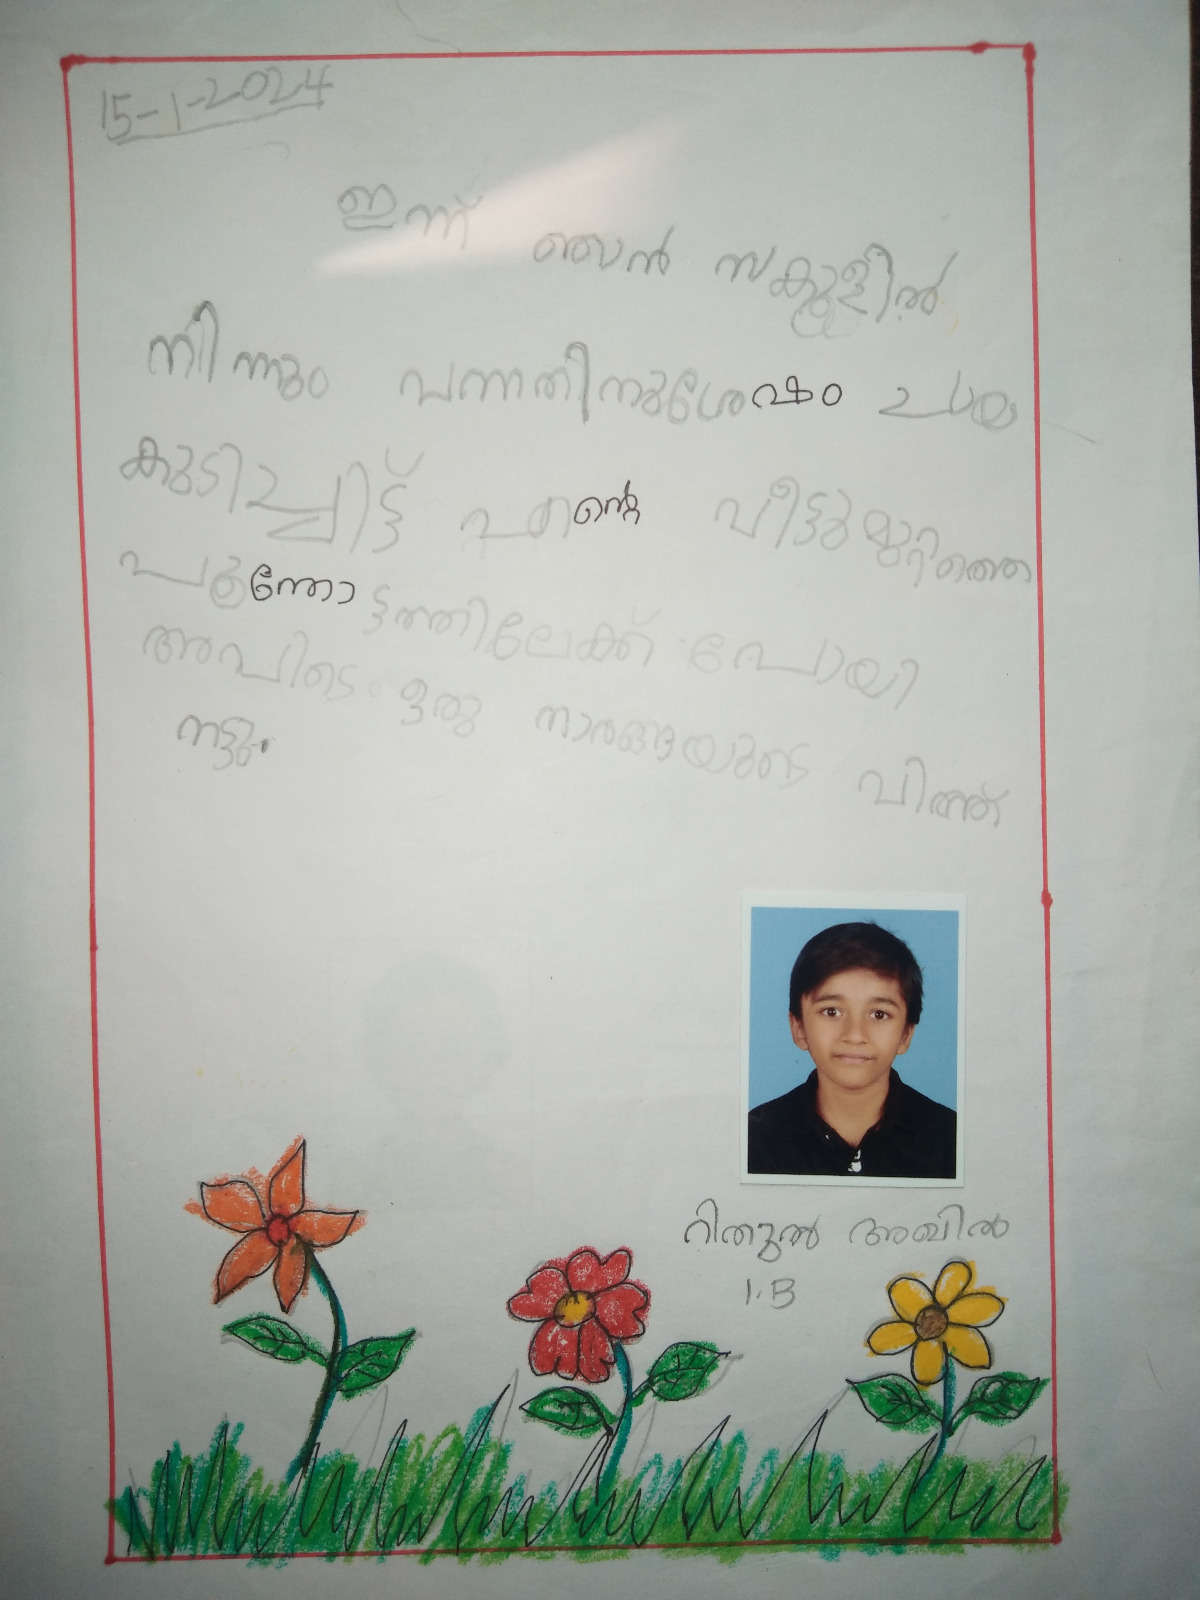 15-1-2024
ഇന്ന് ഞൻ സ്കൂളിൽ
നിന്നും വന്നതിനുശേഷം ചായ
കുടിച്ചിട്ട് എന്റെ വീട്ടുമുറ്റത്തെ
പൂന്തോട്ടത്തിലേക്ക് പോയി
അവിടെ ഒരു നാരങ്ങയുടെ വിത്ത്
നട്ടു.
റിതുൽ അഖിൽ
1.B